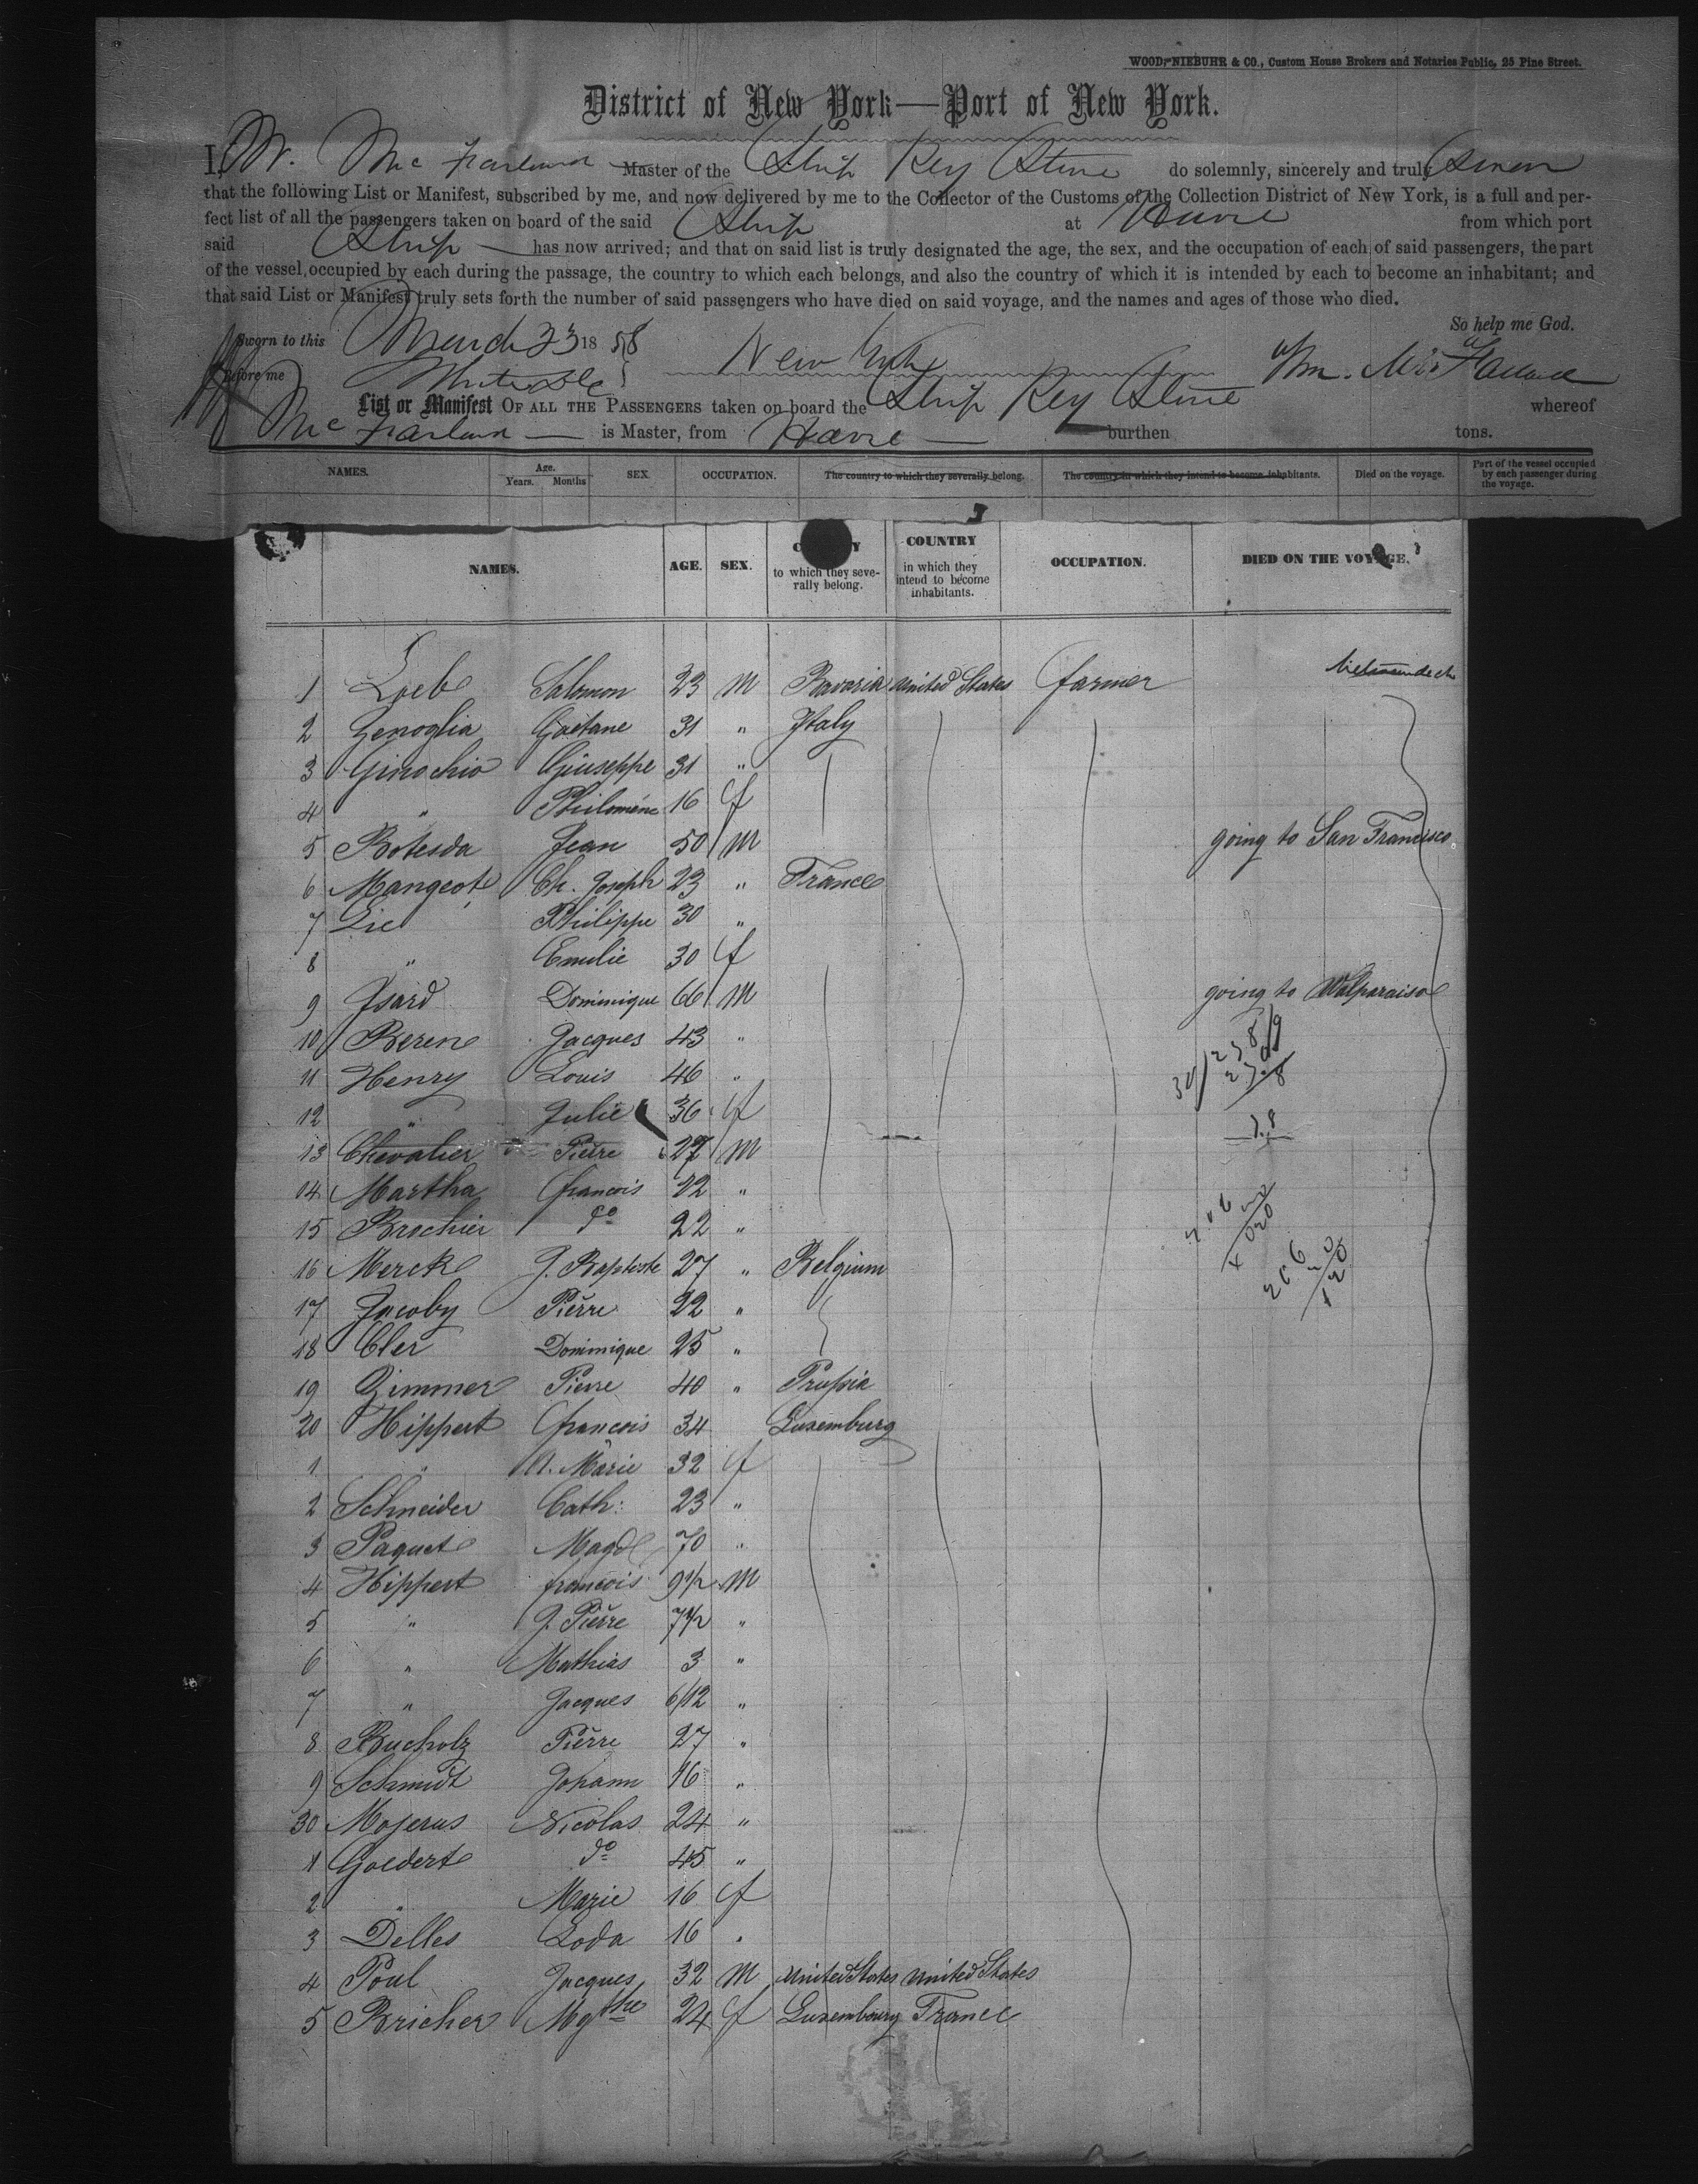 WOOD, NIEBUHR & CO., Custom House Brokers and Notaries Public, 25 Pine Street.
District of New York—Port of New York.
I, W. Mc Farland Master of the Ship Key Stone do solemnly, sincerely and truly Swear
that the following List or Manifest, subscribed by me, and now delivered by me to the Collector of the Customs of the Collection District of New York, is a full and per-
fect list of all the passengers taken on board of the said Ship at Havre from which port
said Ship has now arrived; and that on said list is truly designated the age, the sex, and the occupation of each of said passengers, the part
of the vessel occupied by each during the passage, the country to which each belongs, and also the country of which it is intended by each to become an inhabitant; and
that said List or Manifest truly sets forth the number of said passengers who have died on said voyage, and the names and ages of those who died.
So help me God.
Sworn to this March 23 1858
Before me New York Wm. Mc Farland
List or Manifest OF ALL THE PASSENGERS taken on board the Ship Key Stone whereof
Mc Farland is Master, from Havre burthen tons.
NAMES. Age. Years. Months SEX. OCCUPATION. The country to which they severally belong. The country in which they intend to become inhabitants. Died on the voyage. Part of the vessel occupied by each passenger during the voyage.
NAMES. AGE. SEX. to which they seve-rally belong. COUNTRY in which they intend to become inhabitants. OCCUPATION. DIED ON THE VOYAGE.
1 Loeb Salomon 23 M Bavaria United States farmer
2 Zenoglia Gaetane 31 " Italy
3 Ginochio Giuseppe 31 "
4 " Philomène 16 f
5 Botesda Jean 50 M going to San Francisco
6 Mangeot Ch. Joseph 23 " France
7 Lie Philippe 30 "
8 " Emilie 30 f
9 Isard Dominique 66 M going to Walparaiso
10 Beren Jacques 43 "
11 Henry Louis 46 "
12 " Julie 36 f
13 Chevalier Pierre 27 M
14 Martha francois 22 "
15 Brochier do 22 "
16 Merck J. Baptiste 27 " Belgium
17 Jacoby Pierre 22 "
18 Cler Dominique 25 "
19 Zimmer Pierre 40 " Prussia
20 Hippert francois 34 Luxemburg
1 " A. Marie 32 f
2 Schneider Cath: 23 "
3 Paquet Magd 70 "
4 Hippert francois 9½ M
5 " J. Pierre 7½ "
6 " Mathias 3 "
7 " Jacques 6/12 "
8 Bucholz Pierre 27 "
9 Schmidt Johann 16 "
30 Majerus Nicolas 24 "
1 Goedert do 45 "
2 " Marie 16 f
3 Delles Loda 16 "
4 Poul Jacques 32 M United States United States
5 Bricher Mgthe 24 f Luxembourg France